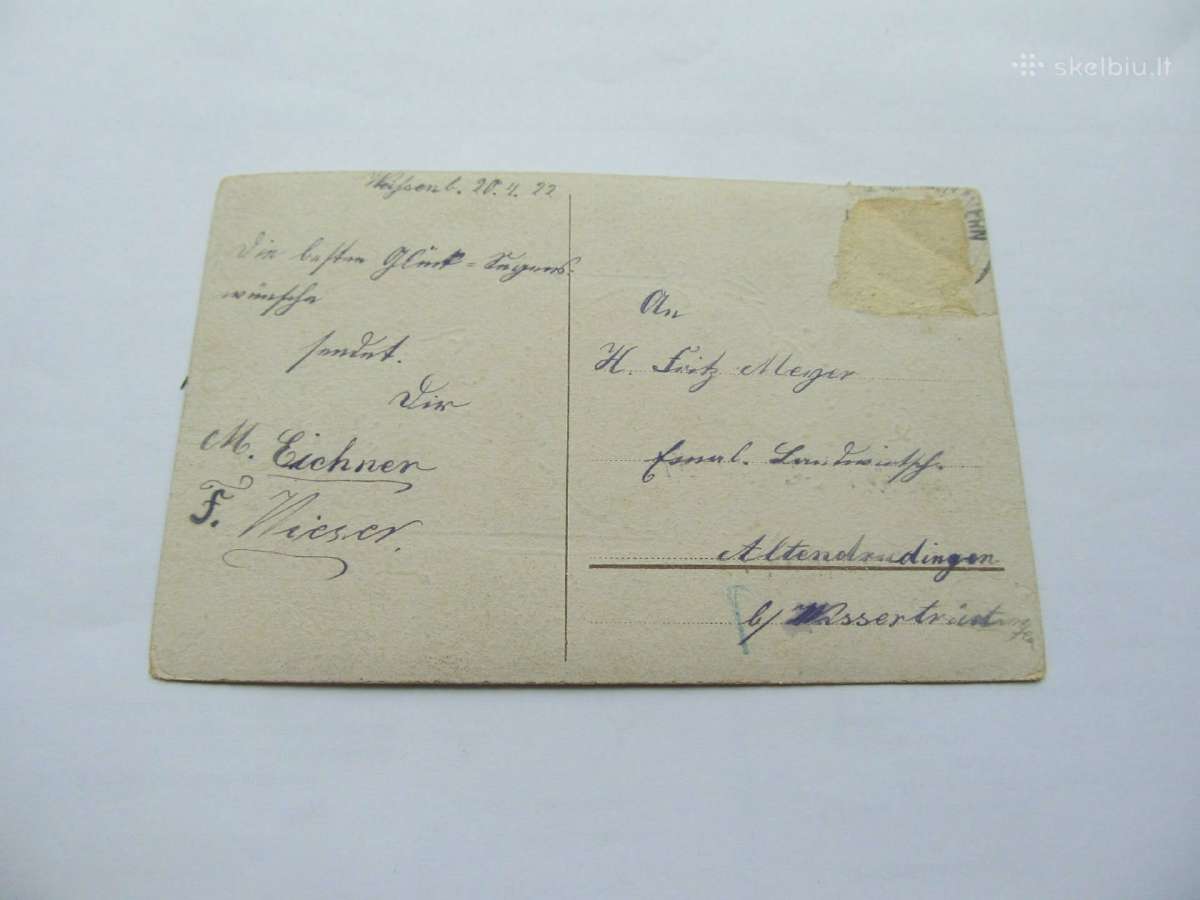 skelbiu.lt
20.4.22
Die besten Glück-Segens-
wünsche
sendet.
Dir
M. Eichner
F. Wieser.
An
H. Fritz Meyer
Landwirtsch.
Altendrudingen
b/ Wassertrüd